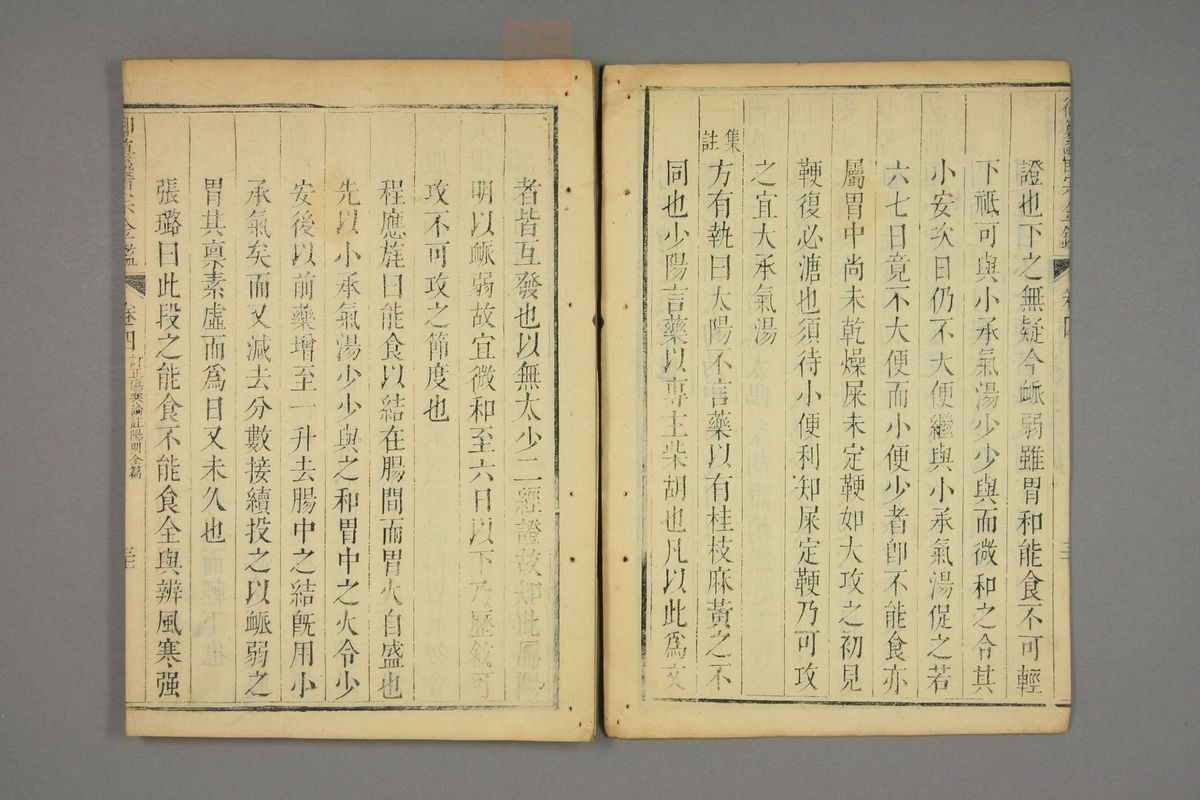 證也下之無疑今脈弱雖胃和能食不可輕
下祗可與小承氣湯少少與而微和之令其
小安次日仍不大便繼與小承氣湯促之若
六七日竟不大便而小便少者卽不能食亦
屬胃中尚未乾燥屎未定鞕如大攻之初見
鞕復必溏也須待小便利知屎定鞕乃可攻
之宜大承氣湯
集註
方有執曰太陽不言藥以有桂枝麻黃之不
同也少陽言藥以專主柴胡也凡以此爲文
者皆互發也以無太少二經證故知此屬陽
明以脈弱故宜微和至六日以下乃歷敘可
攻不可攻之節度也
程應旄曰能食以結在腸間而胃火自盛也
先以小承氣湯少少與之和胃中之火令少
安後以前藥增至一升去腸中之結旣用小
承氣矣而又減去分數接續投之以脈弱之
胃其稟素虛而爲日又未久也
張璐曰此段之能食不能食全與辨風寒强
醫宗金鑑 卷四 訂正傷寒論註陽明全篇